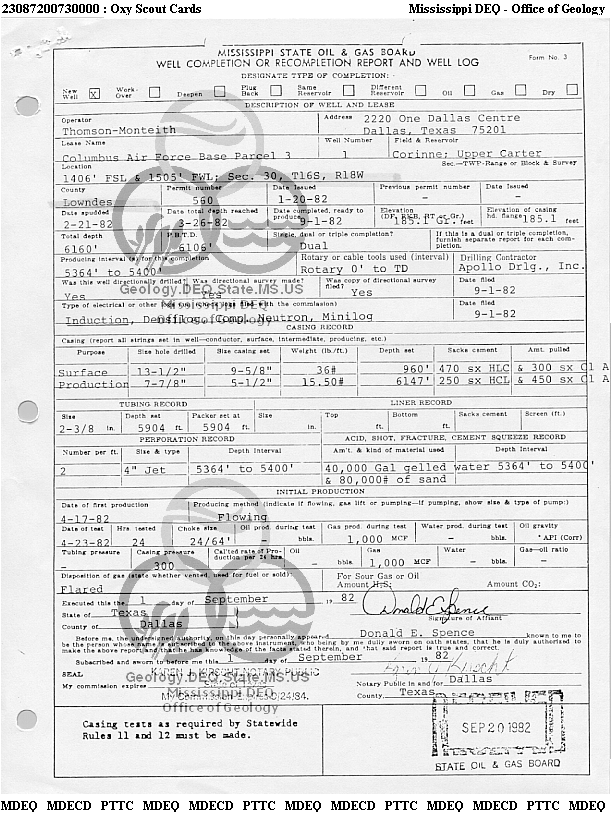 23087200730000 : Oxy Scout Cards Mississippi DEQ - Office of Geology
MISSISSIPPI STATE OIL & GAS BOARD
WELL COMPLETION OR RECOMPLETION REPORT AND WELL LOG Form No. 3
DESIGNATE TYPE OF COMPLETION:
New Well X Work-Over Deepen Plug Back Same Reservoir Different Reservoir Oil Gas Dry
DESCRIPTION OF WELL AND LEASE
Operator Address 2220 One Dallas Centre
Thomson-Monteith Dallas, Texas 75201
Lease Name Well Number Field & Reservoir
Columbus Air Force Base Parcel 3 1 Corinne; Upper Carter
Location Sec.—TWP-Range or Block & Survey
1406' FSL & 1505' FWL; Sec. 30, T16S, R18W
County Permit number Date Issued Previous permit number Date Issued
Lowndes 560 1-20-82 -
Date spudded Date total depth reached Date completed, ready to produce Elevation (DF, RKB, RT or Gr.) Elevation of casing hd. flange
2-21-82 3-26-82 9-1-82 185.1 Gr. feet 185.1 feet
Total depth P.B.T.D. Single, dual or triple completion? If this is a dual or triple completion, furnish separate report for each completion.
6160' 6106' Dual
Producing interval (s) for this completion Rotary or cable tools used (interval) Drilling Contractor
5364' to 5400' Rotary 0' to TD Apollo Drlg., Inc.
Was this well directionally drilled? Was directional survey made? Was copy of directional survey filed? Date filed
Yes Yes Yes 9-1-82
Type of electrical or other logs run (check logs filed with the commission) Date filed
Induction, Densilog, Comp. Neutron, Minilog 9-1-82
CASING RECORD
Casing (report all strings set in well—conductor, surface, intermediate, producing, etc.)
Purpose Size hole drilled Size casing set Weight (lb./ft.) Depth set Sacks cement Amt. pulled
Surface 13-1/2" 9-5/8" 36# 960' 470 sx HLC & 300 sx Cl A
Production 7-7/8" 5-1/2" 15.50# 6147' 250 sx HCL & 450 sx Cl A
TUBING RECORD LINER RECORD
Size Depth set Packer set at Size Top Bottom Sacks cement Screen (ft.)
2-3/8 in. 5904 ft. 5904 ft. in. ft. ft.
PERFORATION RECORD ACID, SHOT, FRACTURE, CEMENT SQUEEZE RECORD
Number per ft. Size & type Depth Interval Am't. & kind of material used Depth Interval
2 4" Jet 5364' to 5400' 40,000 Gal gelled water 5364' to 5400'
& 80,000# of sand
INITIAL PRODUCTION
Date of first production Producing method (indicate if flowing, gas lift or pumping—if pumping, show size & type of pump:)
4-17-82 Flowing
Date of test Hrs tested Choke size Oil prod. during test Gas prod. during test Water prod. during test Oil gravity
4-23-82 24 24/64' - bbls. 1,000 MCF - bbls. ° API (Corr)
Tubing pressure Casing pressure Cal'ted rate of Production per 24 hrs. Oil Gas Water Gas—oil ratio
- 300 - bbls. 1,000 MCF - bbls.
Disposition of gas (state whether vented, used for fuel or sold): For Sour Gas or Oil
Flared Amount H2S: Amount CO2:
Executed this the 1 day of September 19 82 Donald E. Spence
State of Texas Signature of Affiant
County of Dallas
Before me, the undersigned authority, on this day personally appeared Donald E. Spence known to me to
be the person whose name is subscribed to the above instrument, who being by me duly sworn on oath states, that he is duly authorized to
make the above report and that he has knowledge of the facts stated therein, and that said report is true and correct.
Subscribed and sworn to before me this 1 day of September 19 82
SEAL KAREN J. KIRSCHT, NOTARY PUBLIC Notary Public in and for Dallas
My commission expires County, Texas
Casing tests as required by Statewide
Rules 11 and 12 must be made.
SEP 20 1982
STATE OIL & GAS BOARD
Geology.DEQ.State.MS.US
Mississippi DEQ
Office of Geology
Geology.DEQ.State.MS.US
Mississippi DEQ
Office of Geology
MDEQ MDECD PTTC MDEQ MDECD PTTC MDEQ MDECD PTTC MDEQ MDECD PTTC MDEQ